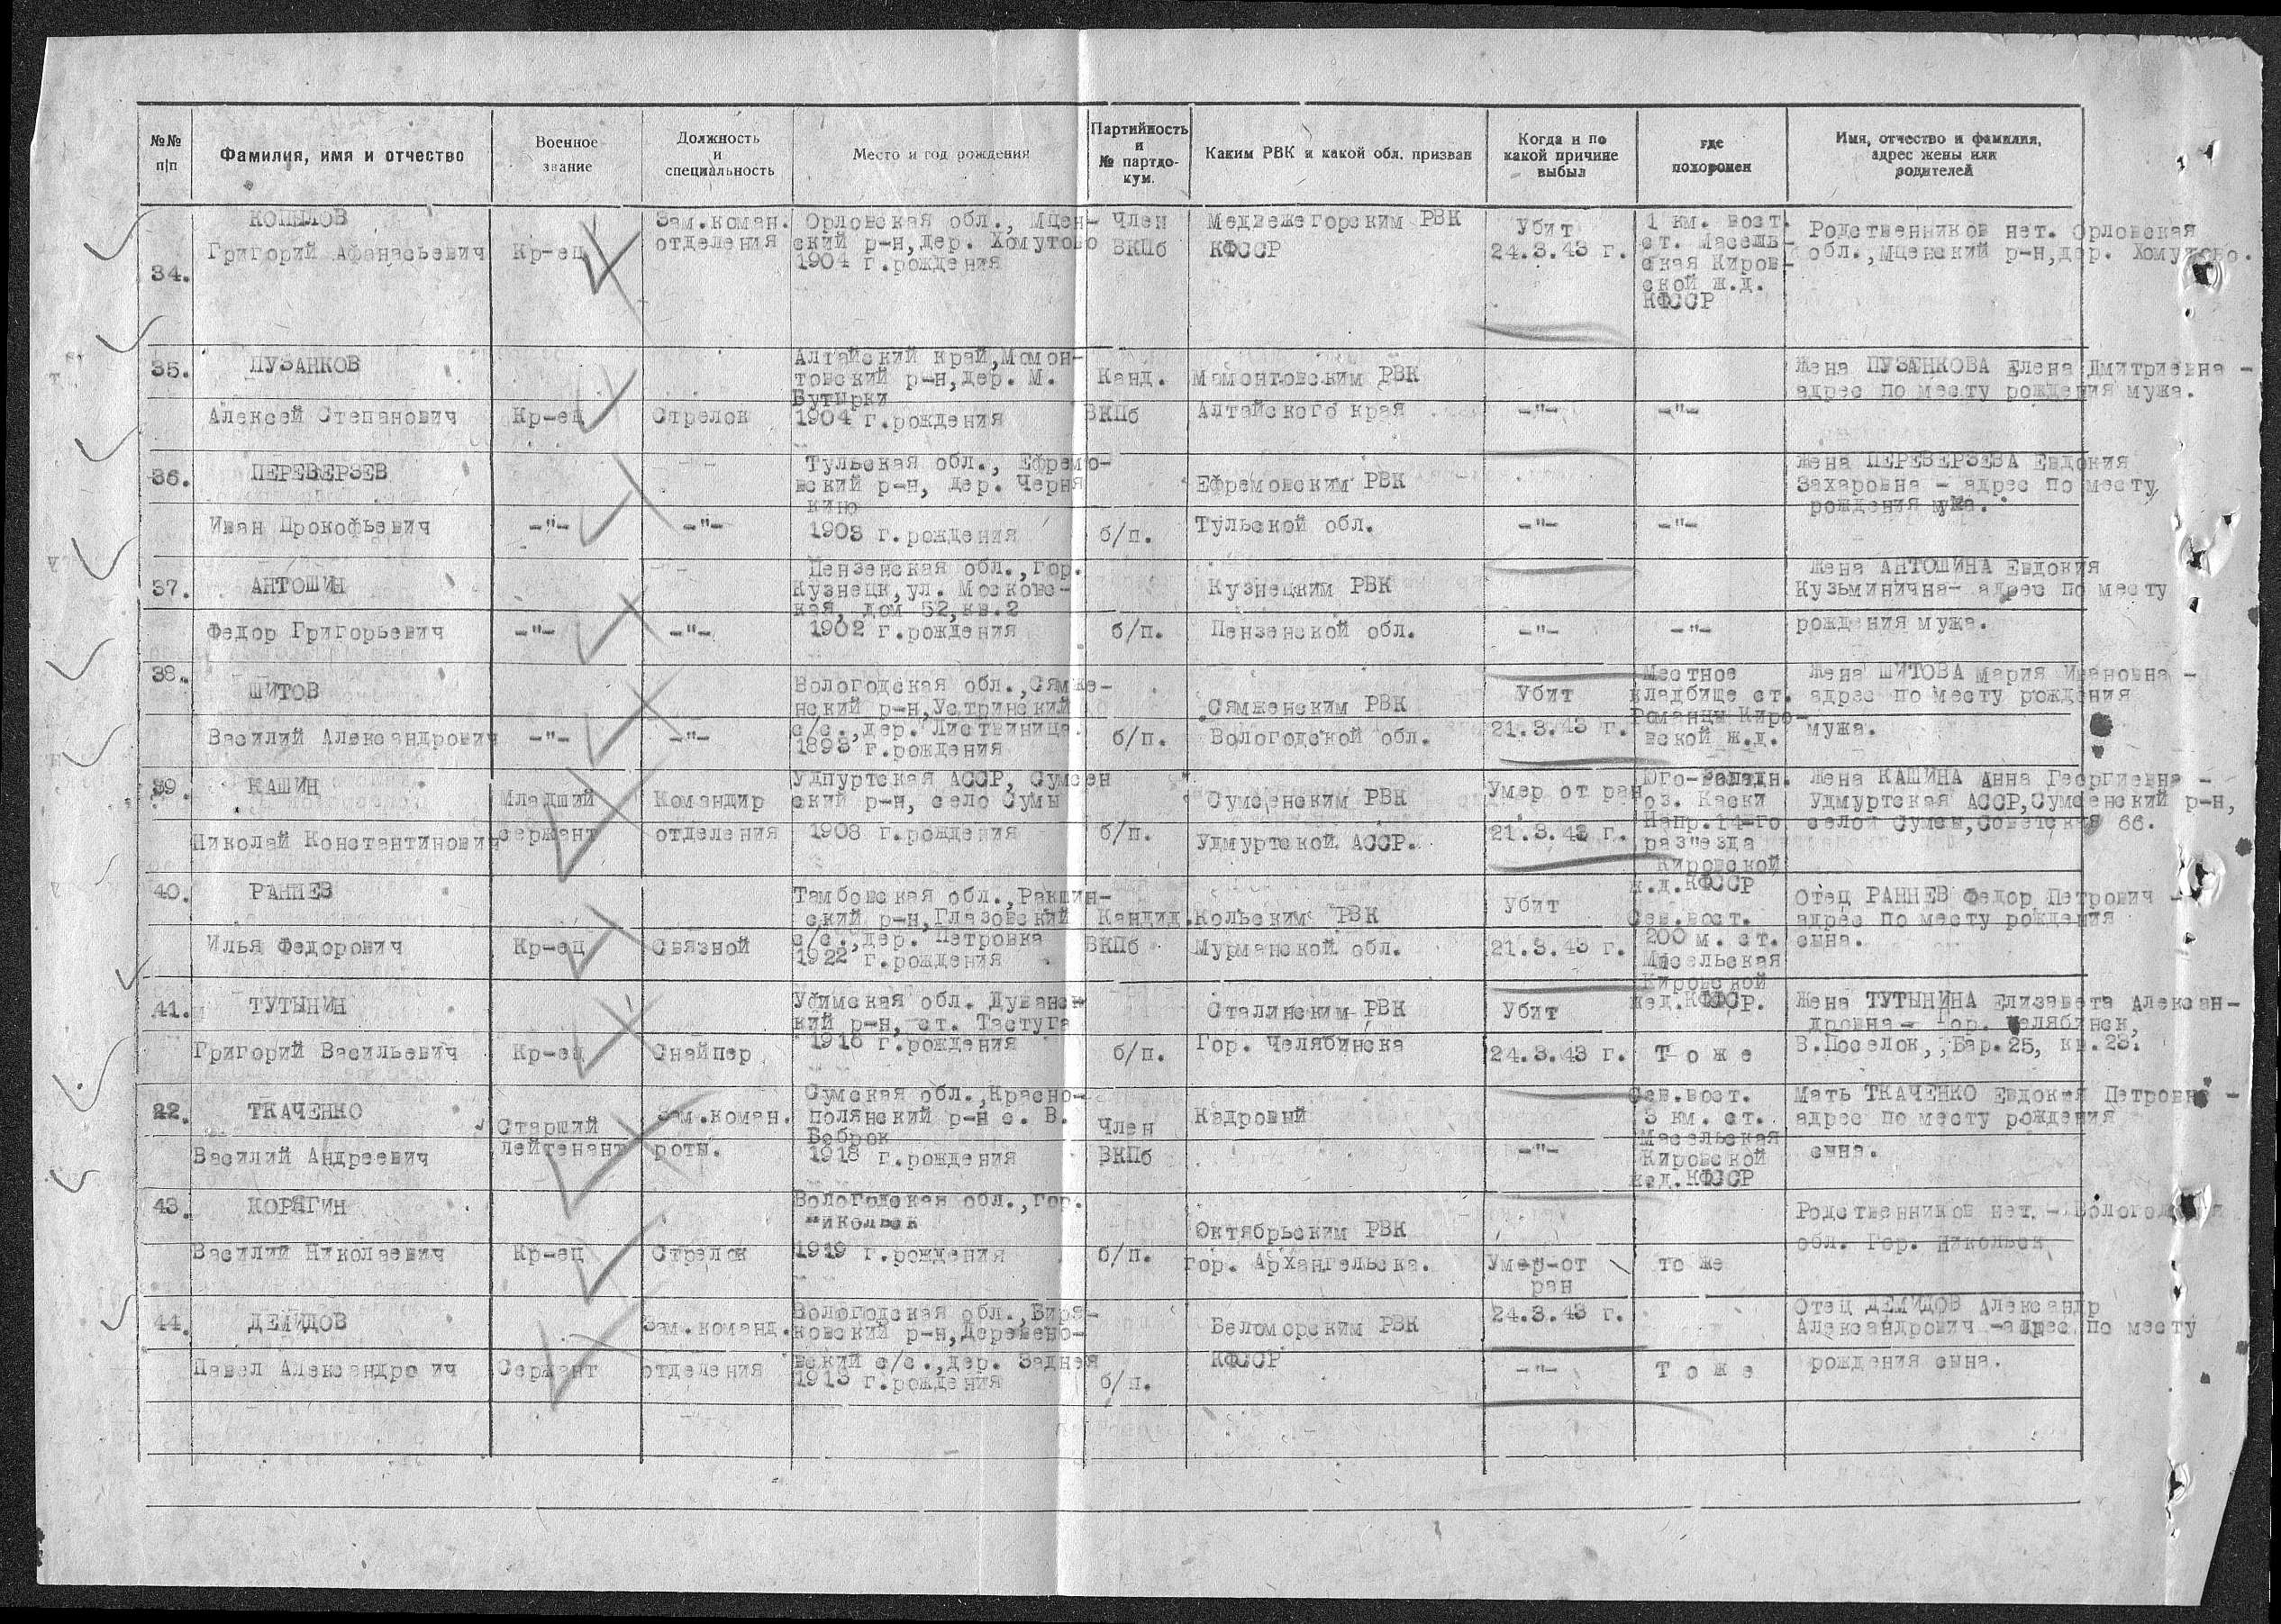 №№ п|п
Фамилия, имя и отчество
Военное звание
Должность и специальность
Место и год рождения
Партийность и № партдокум.
Каким РВК и какой обл. призван
Когда и по какой причине выбыл
где похоронен
Имя, отчество и фамилия, адрес жены или родителей
34.
КОПЫЛОВ
Григорий Афанасьевич
Кр-ец
Зам.коман.
отделения
Орловская обл., Мцен-
ский р-н,дер. Хомутово
1904 г.рождения
Член
ВКПб
Медвежегорским РВК
КФССР
Убит
24.3.43 г.
1 км. вост.
ст. Масель-
ская Киров-
ской ж.д.
КФССР
Родственников нет. Орловская
обл.,Мценский р-н,дер. Хомутово.
35.
ПУЗАНКОВ
Алексей Степанович
Кр-ец
Стрелок
Алтайский край,Момон-
товский р-н,дер. М.
Бутырки
1904 г.рождения
Канд.
ВКПб
Мамонтовским РВК
Алтайского края
-"-
-"-
Жена ПУЗАНКОВА Елена Дмитриевна -
адрес по месту рождения мужа.
36.
ПЕРЕВЕРЗЕВ
Иван Прокофьевич
-"-
-"-
Тульская обл., Ефремо-
вский р-н, дер. Черня
кино
1903 г.рождения
б/п.
Ефремовским РВК
Тульской обл.
-"-
-"-
Жена ПЕРЕВЕРЗЕВА Евдокия
Захаровна - адрес по месту
рождения мужа.
37.
АНТОШИН
Федор Григорьевич
-"-
-"-
Пензенская обл.,гор.
Кузнецк,ул. Московс-
кая, дом 52,кв.2
1902 г.рождения
б/п.
Кузнецким РВК
Пензенской обл.
-"-
-"-
Жена АНТОШИНА Евдокия
Кузьминична- адрес по месту
рождения мужа.
38.
ШИТОВ
Василий Александрович
-"-
-"-
Вологодская обл.,Сямже-
нский р-н,Устринский
с/с.,дер. Листвиница.
1893 г.рождения
б/п.
Сямженским РВК
Вологодской обл.
Убит
21.3.43 г.
Местное
кладбище ст.
Романцы Киро-
вской ж.д.
Жена ШИТОВА Мария Ивановна -
адрес по месту рождения
мужа.
39.
КАШИН
Николай Константинович
Младший
сержант
Командир
отделения
Удпуртская АССР, Сумсен
ский р-н, село Сумы
1908 г.рождения
б/п.
Сумсенским РВК
Удмуртской АССР.
Умер от ран
21.3.43 г.
Юго-западн.
оз. Каски
Напр.14-го
раз"езда
Кировской
ж.д.КФССР
Жена КАШИНА Анна Георгиевна -
Удмуртская АССР,Сумсенский р-н,
селой Сумсы,Советская 66.
40.
РАННЕВ
Илья Федорович
Кр-ец
Связной
Тамбовская обл.,Ракшин-
ский р-н,Глазовский
с/с.,дер. Петровка
1922 г.рождения
Кандид.
ВКПб
Кольским РВК
Мурманской обл.
Убит
21.3.43 г.
Сев.вост.
200 м. ст.
Масельская
Кировской
жед.КФССР.
Отец РАННЕВ Федор Петрович -
адрес по месту рождения
сына.
41.
ТУТЫНИН
Григорий Васильевич
Кр-ец
Снайпер
Уфимская обл. Душанск
кий р-н, ст. Тастуга
1918 г.рождения
б/п.
Сталинским РВК
Гор. Челябинска
Убит
24.3.43 г.
Т о ж е
Жена ТУТЫНИНА Елизавета Алексан-
дровна- Гор. Челябинск,
В.Поселок, Бар.25, кв.23.
22.
ТКАЧЕНКО
Василий Андреевич
Старший
лейтенант
Зам.коман.
роты.
Сумская обл.,Красно-
полянский р-н с. В.
Боброк
1918 г.рождения
Член
ВКПб
Кадровый
-"-
Сев.вост.
3 км. ст.
Масельская
Кировской
жед.КФССР
Мать ТКАЧЕНКО Евдокия Петровна -
адрес по месту рождения
сына.
43.
КОРЯГИН
Василий Николаевич
Кр-ец
Стрелок
Вологодская обл.,гор.
Никольск
1919 г.рождения
б/п.
Октябрьским РВК
гор. Архангельска.
Умер-от
ран
24.3.43 г.
то же
Родственников нет. - Вологодская
обл. Гор. Никольск
44.
ДЕМИДОВ
Павел Александро ич
Сержант
Зам.команд.
отделения
Вологодская обл.,Биря-
ковский р-н,Деревено-
вский с/с.,дер. Задняя
1913 г.рождения
б/п.
Беломорским РВК
КФССР
-"-
Т о ж е
Отец ДЕМИДОВ Александр
Александрович -адрес по месту
рождения сына.